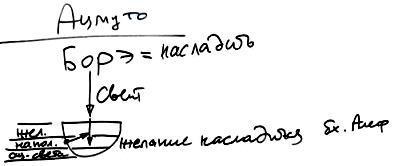 Ацмуто
Борэ = насладить
Свет
жел.
напол.
ощ. света
желание насладиться Бх. Алеф